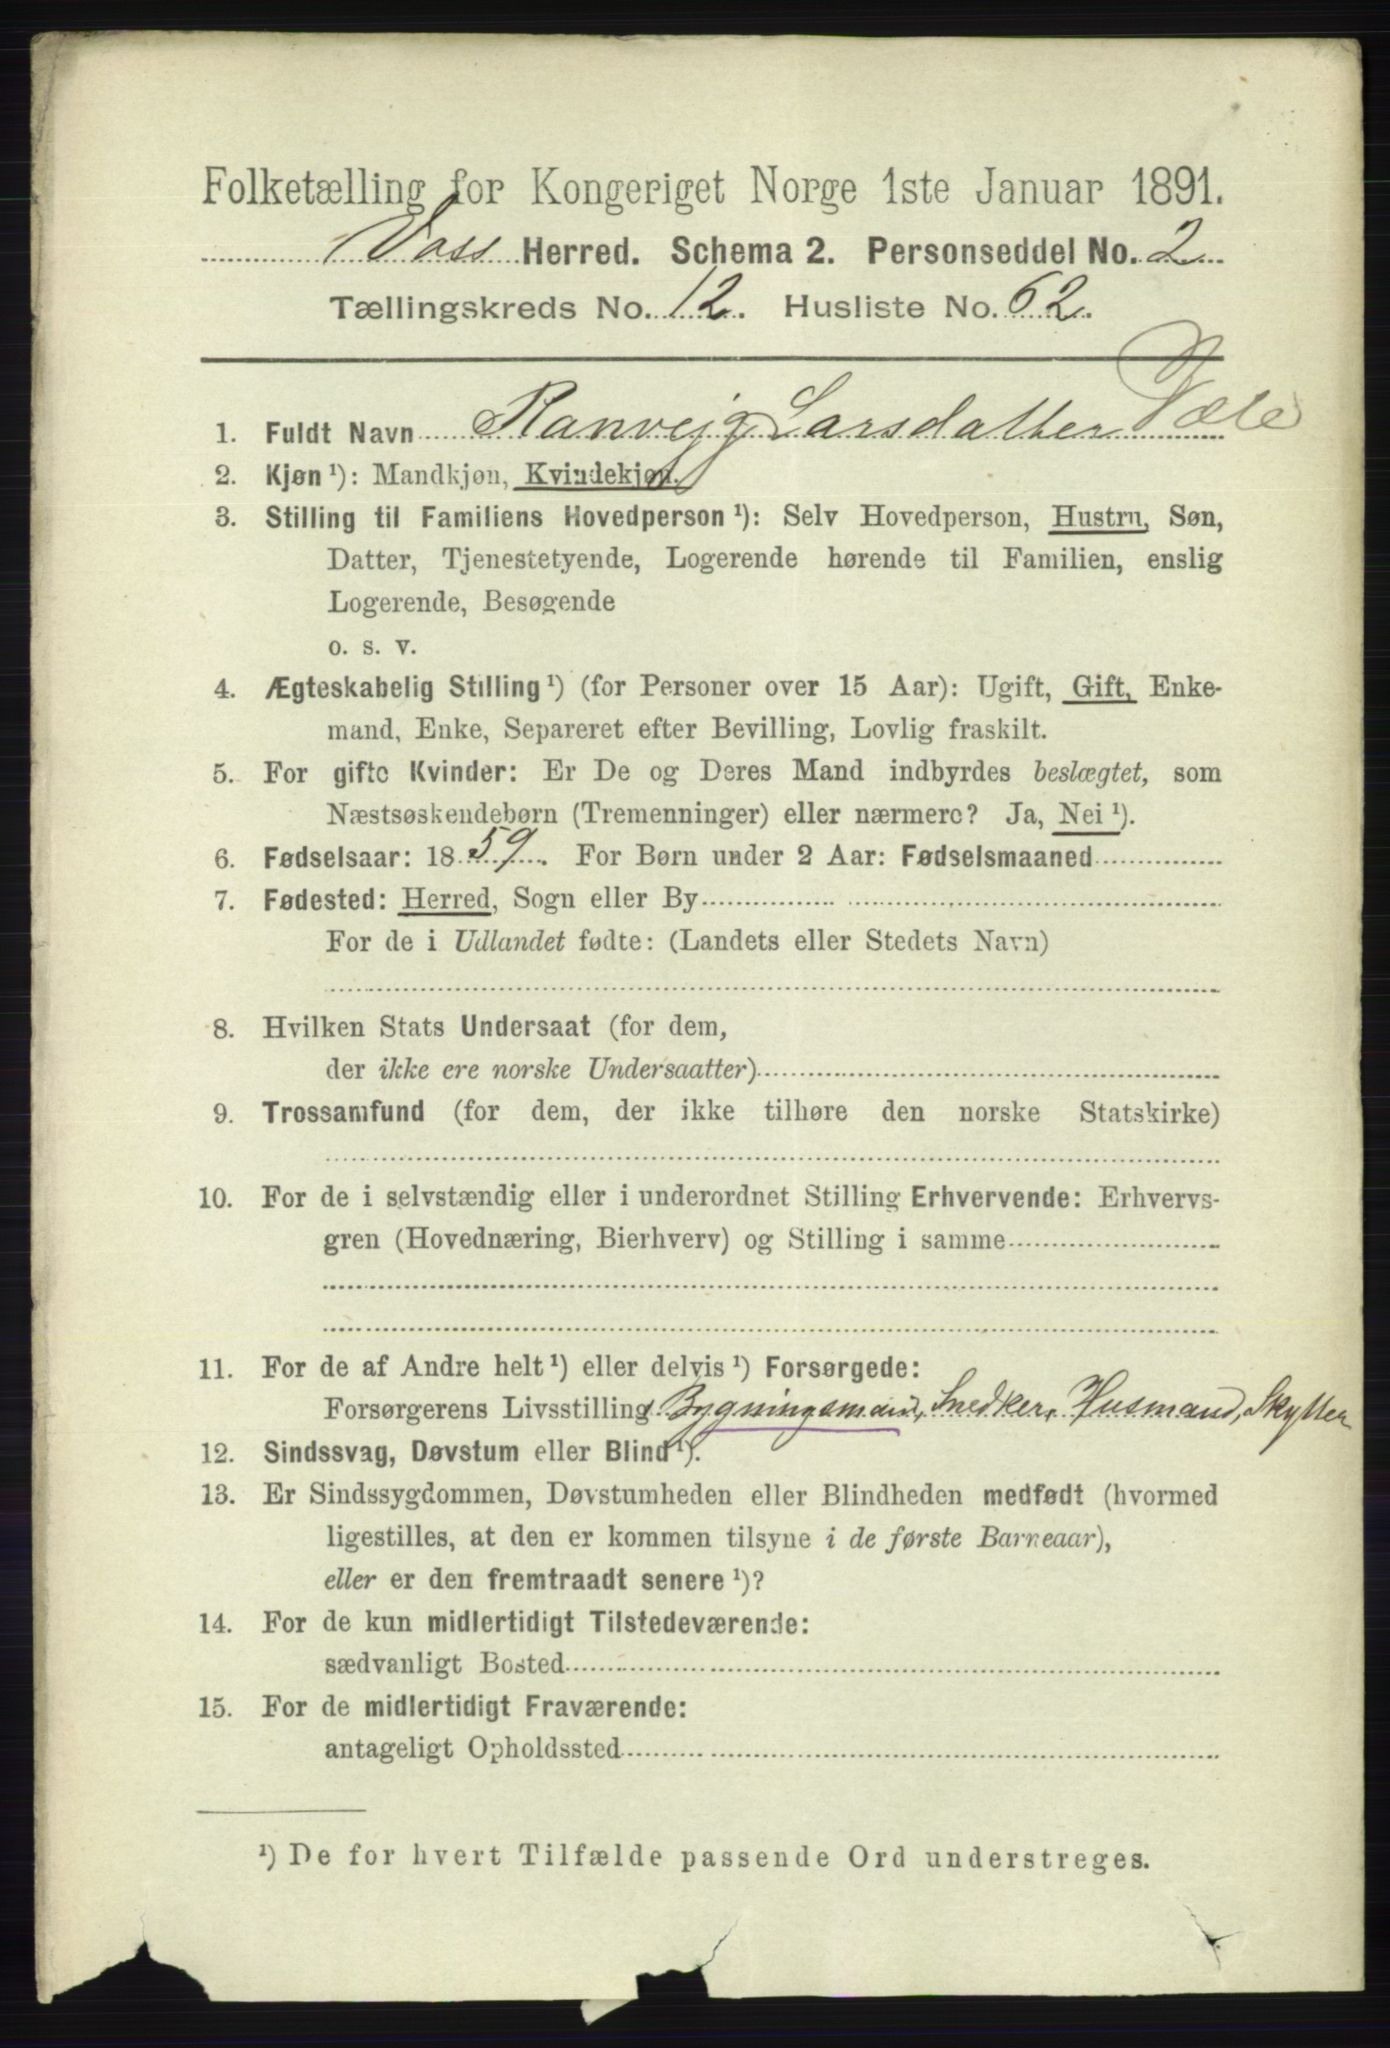 Folketælling for Kongeriget Norge 1ste Januar 1891.
Voss Herred. Schema 2. Personseddel No. 2
Tællingskreds No. 12. Husliste No. 62.
1. Fuldt Navn Ranvejg Larsdatter
2. Kjøn ¹): Mandkjøn, Kvindekjøn.
3. Stilling til Familiens Hovedperson ¹): Selv Hovedperson, Hustru, Søn,
Datter, Tjenestetyende, Logerende hørende til Familien, enslig
Logerende, Besøgende
o. s. v.
4. Ægteskabelig Stilling ¹) (for Personer over 15 Aar): Ugift, Gift, Enke-
mand, Enke, Separeret efter Bevilling, Lovlig fraskilt.
5. For gifte Kvinder: Er De og Deres Mand indbyrdes beslægtet, som
Næstsøskendebørn (Tremenninger) eller nærmere? Ja, Nei ¹).
6. Fødselsaar: 1859. For Børn under 2 Aar: Fødselsmaaned
7. Fødested: Herred, Sogn eller By
For de i Udlandet fødte: (Landets eller Stedets Navn)
8. Hvilken Stats Undersaat (for dem,
der ikke ere norske Undersaatter)
9. Trossamfund (for dem, der ikke tilhøre den norske Statskirke)
10. For de i selvstændig eller i underordnet Stilling Erhvervende: Erhvervs-
gren (Hovednæring, Bierhverv) og Stilling i samme
11. For de af Andre helt ¹) eller delvis ¹) Forsørgede:
Forsørgerens Livsstilling Bygningsmand, Snedker, Husmand, Skytter
12. Sindssvag, Døvstum eller Blind ¹).
13. Er Sindssygdommen, Døvstumheden eller Blindheden medfødt (hvormed
ligestilles, at den er kommen tilsyne i de første Barneaar),
eller er den fremtraadt senere ¹)?
14. For de kun midlertidigt Tilstedeværende:
sædvanligt Bosted
15. For de midlertidigt Fraværende:
antageligt Opholdssted
¹) De for hvert Tilfælde passende Ord understreges.